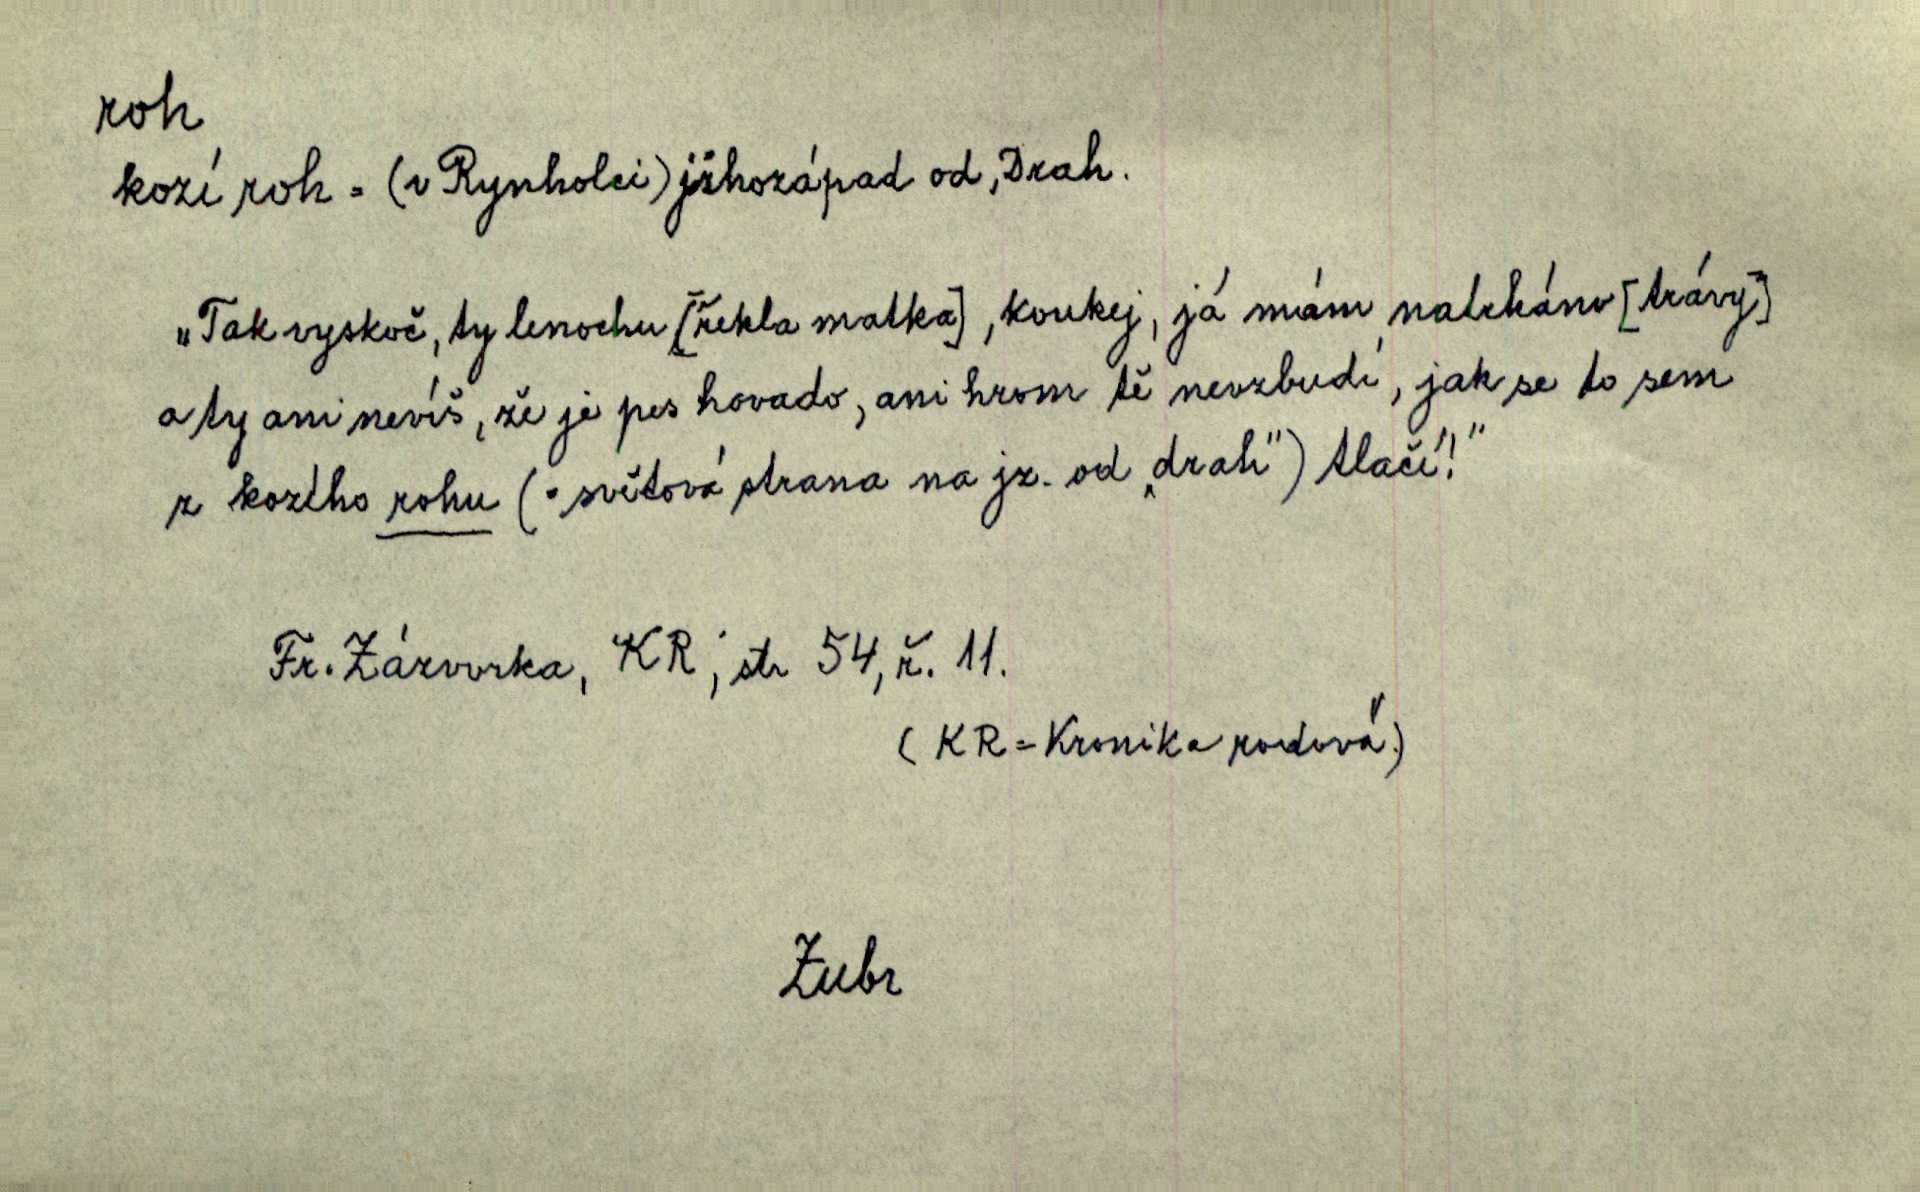 roh
kozí roh = (v Rynholci) jihozápad od „Drah.
„Tak vyskoč, ty lenochu [řekla matka], koukej, já mám natrháno [trávy]
a ty ani nevíš, že je pes hovado, ani hrom tě nevzbudí, jak se to sem
z kozího rohu (= světová strana na jz. od „drah") tlačí!"
Fr. Zázvorka, KR, str 54, ř. 11.
(KR = Kronika rodová)
Zubr